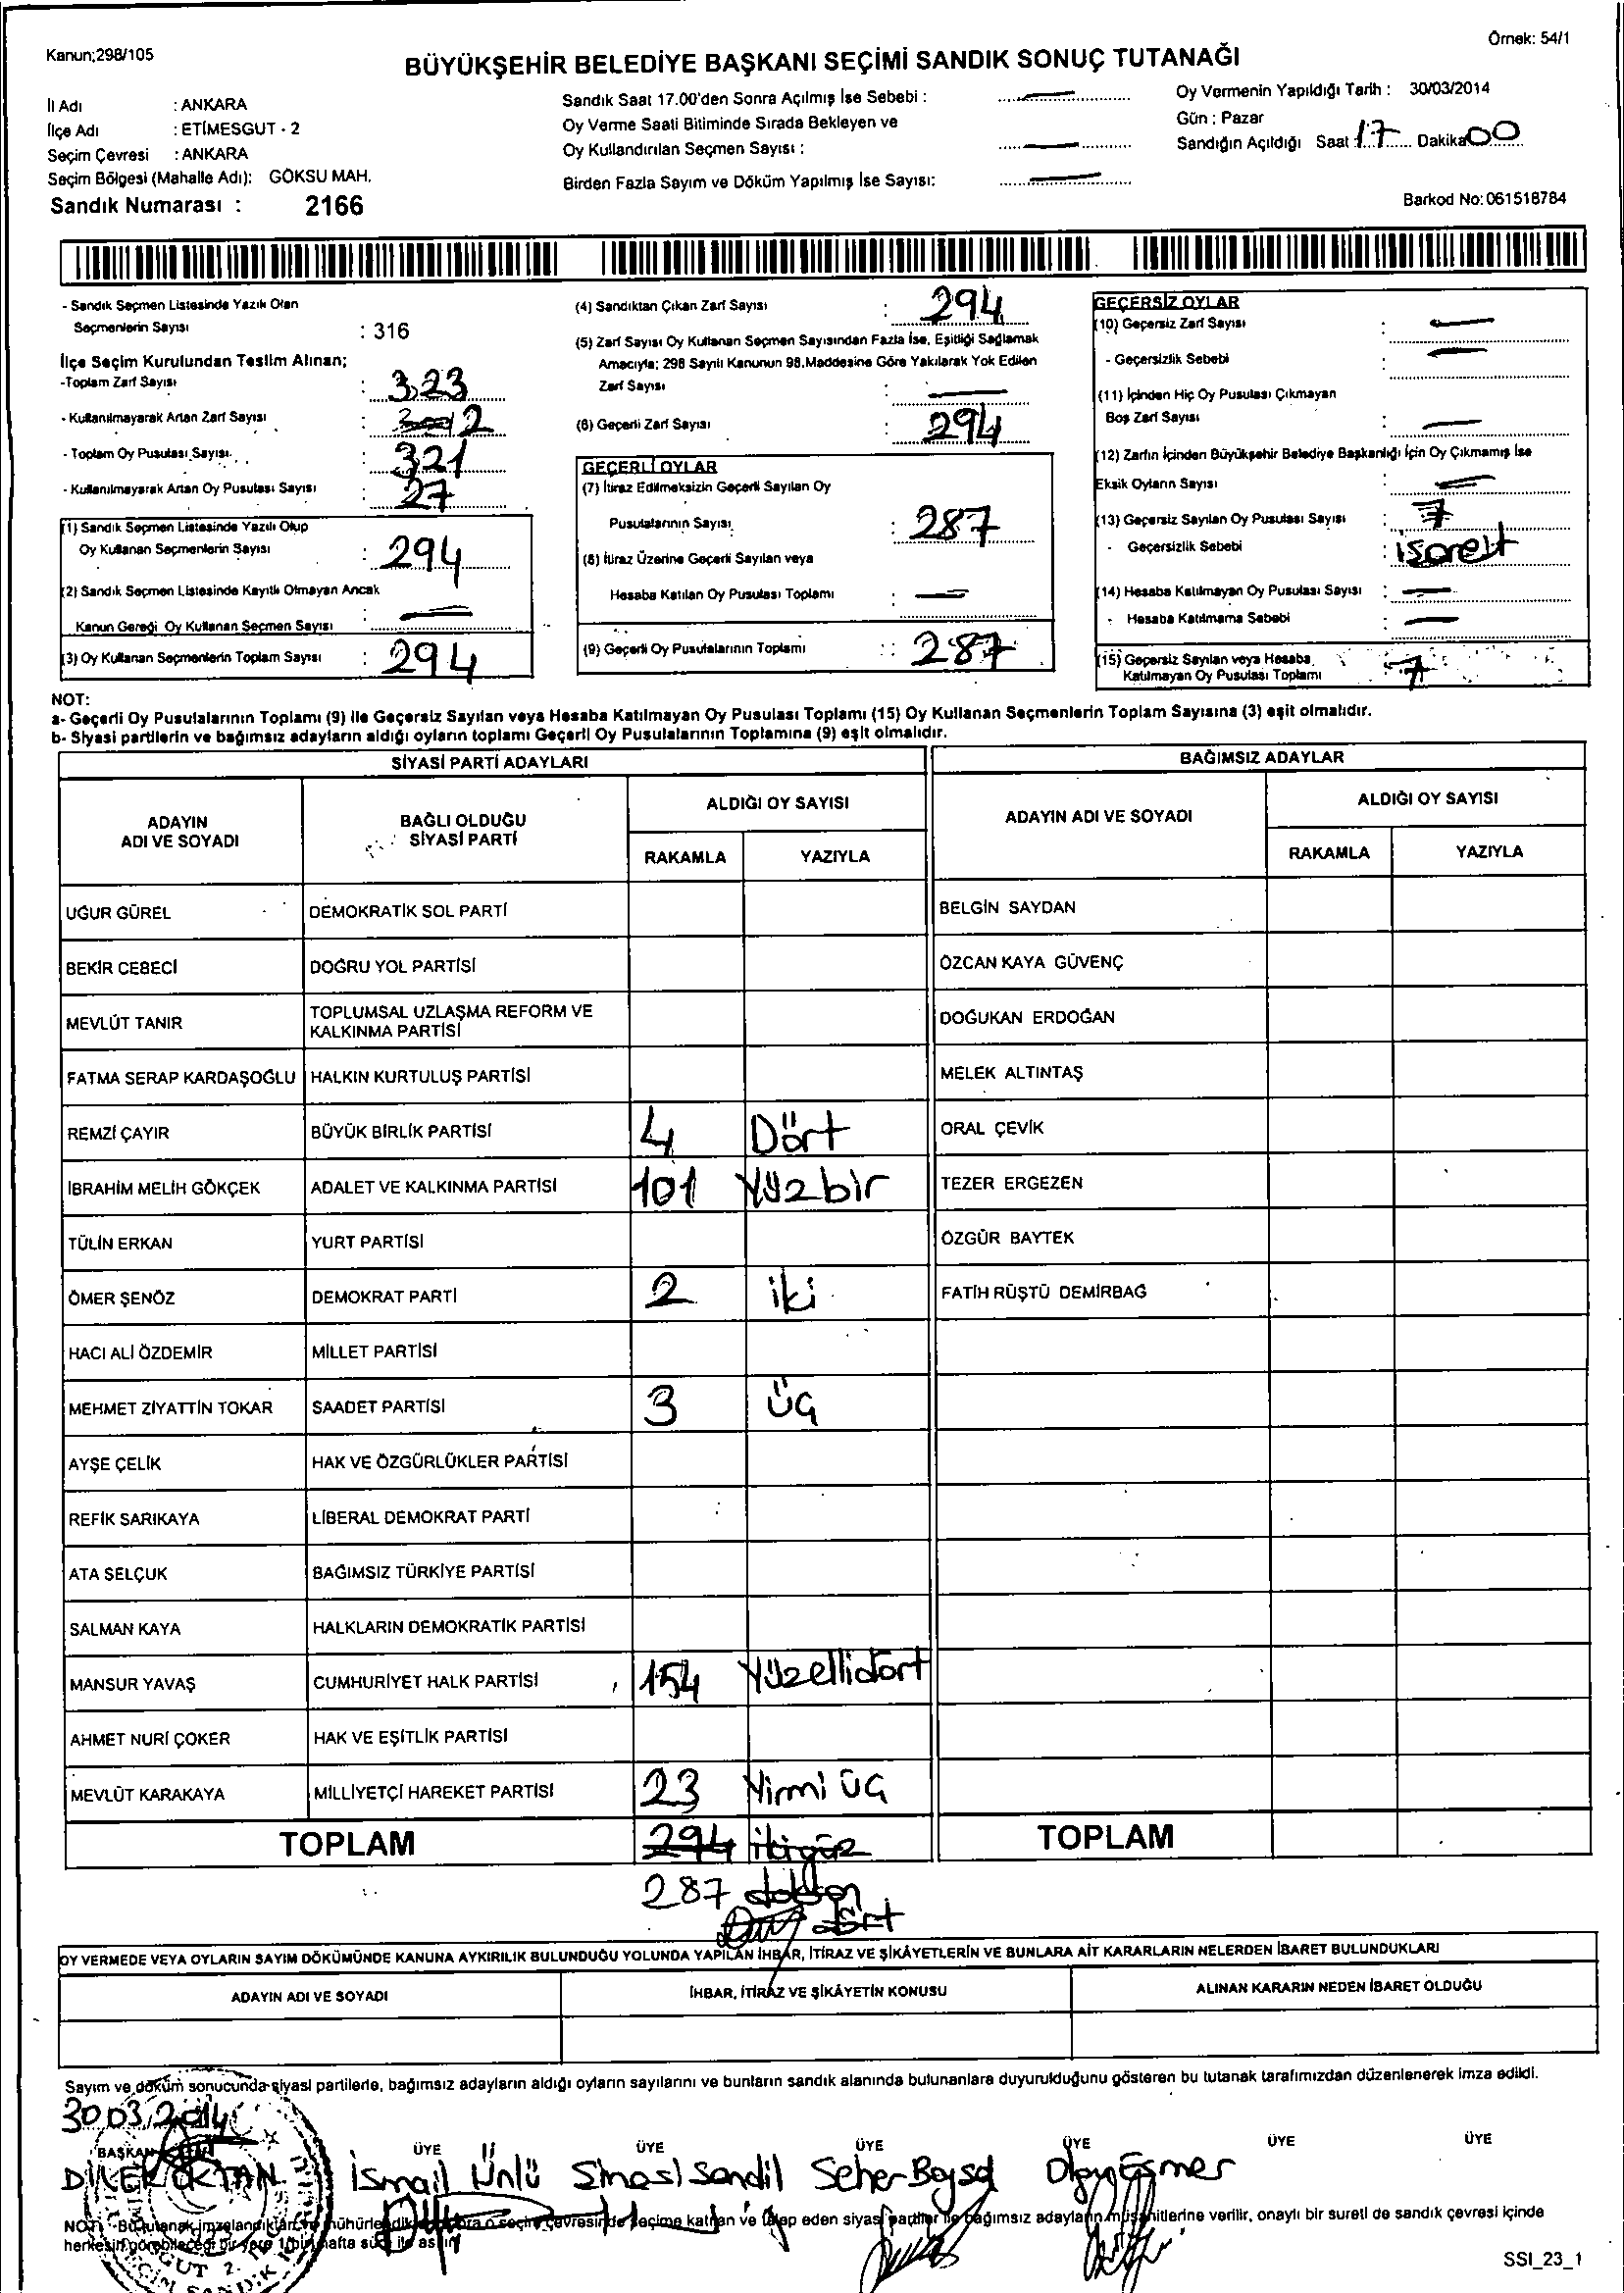 Kanun;298/105
Örnek: 54/1
BÜYÜKŞEHİR BELEDİYE BAŞKANI SEÇİMİ SANDIK SONUÇ TUTANAĞI
İl Adı : ANKARA
İlçe Adı : ETİMESGUT - 2
Seçim Çevresi : ANKARA
Seçim Bölgesi (Mahalle Adı): GÖKSU MAH.
Sandık Numarası : 2166
Sandık Saat 17.00'den Sonra Açılmış İse Sebebi : —
Oy Verme Saati Bitiminde Sırada Bekleyen ve
Oy Kullandırılan Seçmen Sayısı : —
Birden Fazla Sayım ve Döküm Yapılmış İse Sayısı: —
Oy Vermenin Yapıldığı Tarih : 30/03/2014
Gün : Pazar
Sandığın Açıldığı Saat : 17 Dakika 00
Barkod No: 061518784
- Sandık Seçmen Listesinde Yazılı Olan
Seçmenlerin Sayısı : 316
İlçe Seçim Kurulundan Teslim Alınan;
-Toplam Zarf Sayısı : 323
- Kullanılmayarak Artan Zarf Sayısı : 2
- Toplam Oy Pusulası Sayısı : 321
- Kullanılmayarak Artan Oy Pusulası Sayısı : 27
(1) Sandık Seçmen Listesinde Yazılı Olup
Oy Kullanan Seçmenlerin Sayısı : 294
(2) Sandık Seçmen Listesinde Kayıtlı Olmayan Ancak
Kanun Gereği Oy Kullanan Seçmen Sayısı : —
(3) Oy Kullanan Seçmenlerin Toplam Sayısı : 294
(4) Sandıktan Çıkan Zarf Sayısı : 294
(5) Zarf Sayısı Oy Kullanan Seçmen Sayısından Fazla İse, Eşitliği Sağlamak
Amacıyla; 298 Sayılı Kanunun 98.Maddesine Göre Yakılarak Yok Edilen
Zarf Sayısı : —
(6) Geçerli Zarf Sayısı : 294
GEÇERLİ OYLAR
(7) İtiraz Edilmeksizin Geçerli Sayılan Oy
Pusulalarının Sayısı : 287
(8) İtiraz Üzerine Geçerli Sayılan veya
Hesaba Katılan Oy Pusulası Toplamı : —
(9) Geçerli Oy Pusulalarının Toplamı : 287
GEÇERSİZ OYLAR
(10) Geçersiz Zarf Sayısı : —
- Geçersizlik Sebebi : —
(11) İçinden Hiç Oy Pusulası Çıkmayan
Boş Zarf Sayısı : —
(12) Zarfın İçinden Büyükşehir Belediye Başkanlığı İçin Oy Çıkmamış İse
Eksik Oyların Sayısı : —
(13) Geçersiz Sayılan Oy Pusulası Sayısı : 7
- Geçersizlik Sebebi : işaret
(14) Hesaba Katılmayan Oy Pusulası Sayısı : —
- Hesaba Katılmama Sebebi : —
(15) Geçersiz Sayılan veya Hesaba
Katılmayan Oy Pusulası Toplamı : 7
NOT:
a- Geçerli Oy Pusulalarının Toplamı (9) ile Geçersiz Sayılan veya Hesaba Katılmayan Oy Pusulası Toplamı (15) Oy Kullanan Seçmenlerin Toplam Sayısına (3) eşit olmalıdır.
b- Siyasi partilerin ve bağımsız adayların aldığı oyların toplamı Geçerli Oy Pusulalarının Toplamına (9) eşit olmalıdır.
SİYASİ PARTİ ADAYLARI
BAĞIMSIZ ADAYLAR
ADAYIN ADI VE SOYADI
BAĞLI OLDUĞU SİYASİ PARTİ
ALDIĞI OY SAYISI
RAKAMLA YAZIYLA
ADAYIN ADI VE SOYADI
ALDIĞI OY SAYISI
RAKAMLA YAZIYLA
UĞUR GÜREL DEMOKRATİK SOL PARTİ BELGİN SAYDAN
BEKİR CEBECİ DOĞRU YOL PARTİSİ ÖZCAN KAYA GÜVENÇ
MEVLÜT TANIR TOPLUMSAL UZLAŞMA REFORM VE KALKINMA PARTİSİ DOĞUKAN ERDOĞAN
FATMA SERAP KARDAŞOĞLU HALKIN KURTULUŞ PARTİSİ MELEK ALTINTAŞ
REMZİ ÇAYIR BÜYÜK BİRLİK PARTİSİ 4 Dört ORAL ÇEVİK
İBRAHİM MELİH GÖKÇEK ADALET VE KALKINMA PARTİSİ 101 Yüzbir TEZER ERGEZEN
TÜLİN ERKAN YURT PARTİSİ ÖZGÜR BAYTEK
ÖMER ŞENÖZ DEMOKRAT PARTİ 2 iki FATİH RÜŞTÜ DEMİRBAĞ
HACI ALİ ÖZDEMİR MİLLET PARTİSİ
MEHMET ZİYATTİN TOKAR SAADET PARTİSİ 3 üç
AYŞE ÇELİK HAK VE ÖZGÜRLÜKLER PARTİSİ
REFİK SARIKAYA LİBERAL DEMOKRAT PARTİ
ATA SELÇUK BAĞIMSIZ TÜRKİYE PARTİSİ
SALMAN KAYA HALKLARIN DEMOKRATİK PARTİSİ
MANSUR YAVAŞ CUMHURİYET HALK PARTİSİ 154 Yüzellidört
AHMET NURİ ÇOKER HAK VE EŞİTLİK PARTİSİ
MEVLÜT KARAKAYA MİLLİYETÇİ HAREKET PARTİSİ 23 Yirmi üç
TOPLAM 294 ikiyüz TOPLAM
287 doksan
dört
OY VERMEDE VEYA OYLARIN SAYIM DÖKÜMÜNDE KANUNA AYKIRILIK BULUNDUĞU YOLUNDA YAPILAN İHBAR, İTİRAZ VE ŞİKÂYETLERİN VE BUNLARA AİT KARARLARIN NELERDEN İBARET BULUNDUKLARI
ADAYIN ADI VE SOYADI İHBAR, İTİRAZ VE ŞİKÂYETİN KONUSU ALINAN KARARIN NEDEN İBARET OLDUĞU
Sayım ve döküm sonucunda siyasi partilerle, bağımsız adayların aldığı oyların sayılarını ve bunların sandık alanında bulunanlara duyurulduğunu gösteren bu tutanak tarafımızdan düzenlenerek imza edildi.
30 03 2014
BAŞKAN ÜYE ÜYE ÜYE ÜYE ÜYE ÜYE
DİLEK OKTAN İsmail Ünlü Sinasi Sandil Seher Olgay Esmer
NOT: - Bu tutanak imzalandıktan ve mühürlendikten sonra o seçim çevresinde seçime katılan ve talep eden siyasi partiler ile bağımsız adayların müşahitlerine verilir, onaylı bir sureti de sandık çevresi içinde
herkesin görebileceği bir yere 1 bir hafta süre ile asılır
SSI_23_1